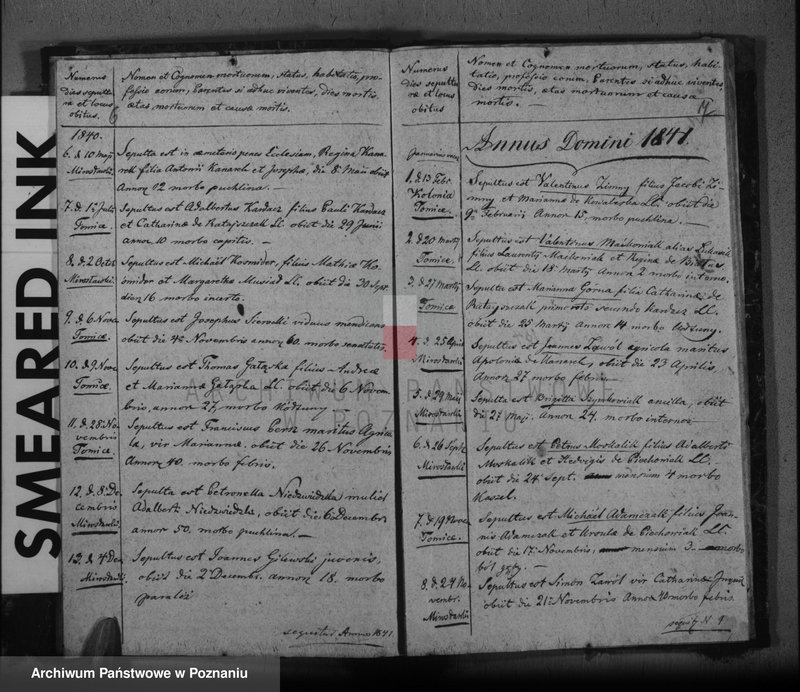 SMEARED INK
Numerus
dies sepultu
ræ et locus
obitus.
Nomen et Cognomen mortuorum, status, habitatio, pro-
fessio eorum, Parentes si adhuc viventes, dies mortis,
ætas, mortuorum et causa mortis.
1840.
6. d. 10 Maji
Mirosławki
Sepulta est in cæmeterio penes Ecclesiam, Regina Kana
rek filia Antonii Kanarek et Josephæ, die 8 Maii obiit
Annor 02 morbo puchlina. —
7. d. 1 Julii
Tomice
Sepultus est Adalbertus Kardacz filius Pauli Kardacz
et Catharinæ de Ratajszczak LL. obiit die 29 Junii
annor. 10 morbo capitis. —
8. d. 2 Octob
Mirosławki
Sepultus est Michaël Kosmider, filius Mathiæ Ko-
smider et Margarethæ Musiał LL. obiit die 30 Sept.
dierum 16 morbo incerto.
9. d. 6 Novem
Tomice.
Sepultus est Josephus Sierocki viduus mendicans
obiit die 4 Novembris annor 60. morbo senectutis.
10. d. 9. Nove
Tomice
Sepultus est Thomas Gałązka filius Andreæ
et Mariannæ Gałązka LL. obiit die 6 Novem
bris, annor 27, morbo
11. d. 28. No
vembris
Tomice.
Sepultus est Franciscus Perz maritus Agrico
la, vir Mariannæ. obiit die 26 Novembris
Annor 40. morbo febris.
12. d. 8. De
cembris
Mirosławki
Sepulta est Petronella Niedzwiedzka mulier
Adalberti Niedzwiedzki, obiit die 6 Decembr
annor 50. morbo puchlina. —
13. d. 4 Dec
Mirosławki
Sepultus est Joannes Gilewski juvenis,
obiit die 2 Decembr. annor 18. morbo
paraliż
sequitur Annus 1841.
Numerus
dies sepultu
ræ et locus
obitus
Nomen et Cognomen mortuorum, status, habi
tatio, professio eorum, Parentes si adhuc viventes,
dies mortis, ætas mortuorum et causa
mortis. —
17
Annus Domini 1841.
1. d. 13 Febr.
Kolonia
Tomice.
Sepultus est Valentinus Zimny filius Jacobi Zi-
mny et Mariannæ de Kowalaska LL. obiit die
9 Februarii Annor 15. morbo puchlina. —
2. d. 20 Martij
Tomice.
Sepultus est Valentinus Maćkowiak alias
filius Laurentij Maćkowiak et Reginæ de
LL. obiit die 18 Martij Annor 2 morbo interno.
3. d. 27 Martij
Tomice
Sepulta est Marianna Górna filia Catharinæ de
Ratajszczak primo voto secundo Kardacz LL.
obiit die 25 Martij Annor 14 morbo
4. d. 25 Aprilis
Mirosławki
Sepultus est Joannes Zawól agricola maritus
Apoloniæ de Kanarek, obiit die 23 Aprilis,
Annor 27 morbo febris.
5. d. 29 Maij
Mirosławki
Sepulta est Brigitta Szymkowiak ancilla, obiit
die 27 Maji. Annor 24. morbo interno
6. d. 26 Septr
Mirosławki
Sepultus est Petrus Moskalik filius Adalberti
Moskalik et Hedvigis de Piechowiak LL.
obiit die 24 Sept. mensium 4 morbo
Kaszel.
7. d. 19 Nove
Tomice.
Sepultus est Michaël Adamczak filius Joan
nis Adamczak et Ursula de Piechowiak LL.
obiit die 17. Novembris, mensium 3. morbo
8. d. 24 No
vembri.
Mirosławki
Sepultus est Simon Zawól vir Catharinæ
obiit die 21 Novembris Annor 40 morbo febris.
sequitur N. 9
ARCHIWUM PAŃSTWOWE
POZNAŃ
Archiwum Państwowe w Poznaniu